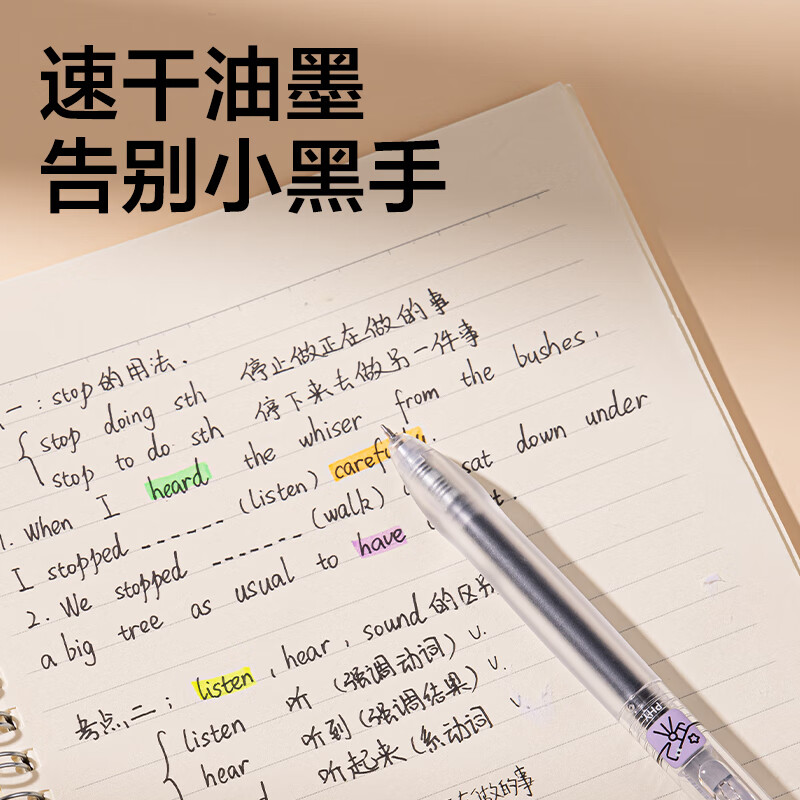 速干油墨
告别小黑手
一：stop的用法.
stop doing sth 停止做正在做的事
stop to do sth 停下来去做另一件事
1. When I heard the whiser from the bushes,
I stopped ------ (listen)
2. We stopped ------- (walk) sat down under
a big tree as usual to have
考点二：listen, hear, sound的区别
listen 听 (强调动词) v.
hear 听到 (强调结果) v.
听起来 (系动词 v
做的事